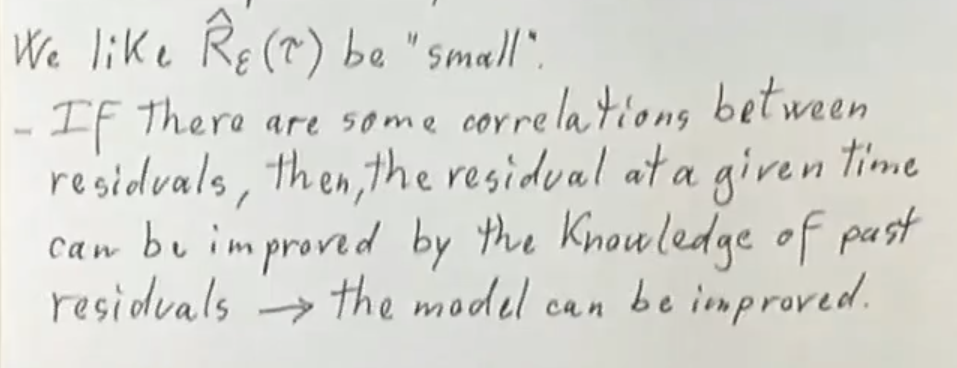 We like R̂ε(τ) be "small".
- If there are some correlations between
residuals, then, the residual at a given time
can be improved by the knowledge of past
residuals → the model can be improved.